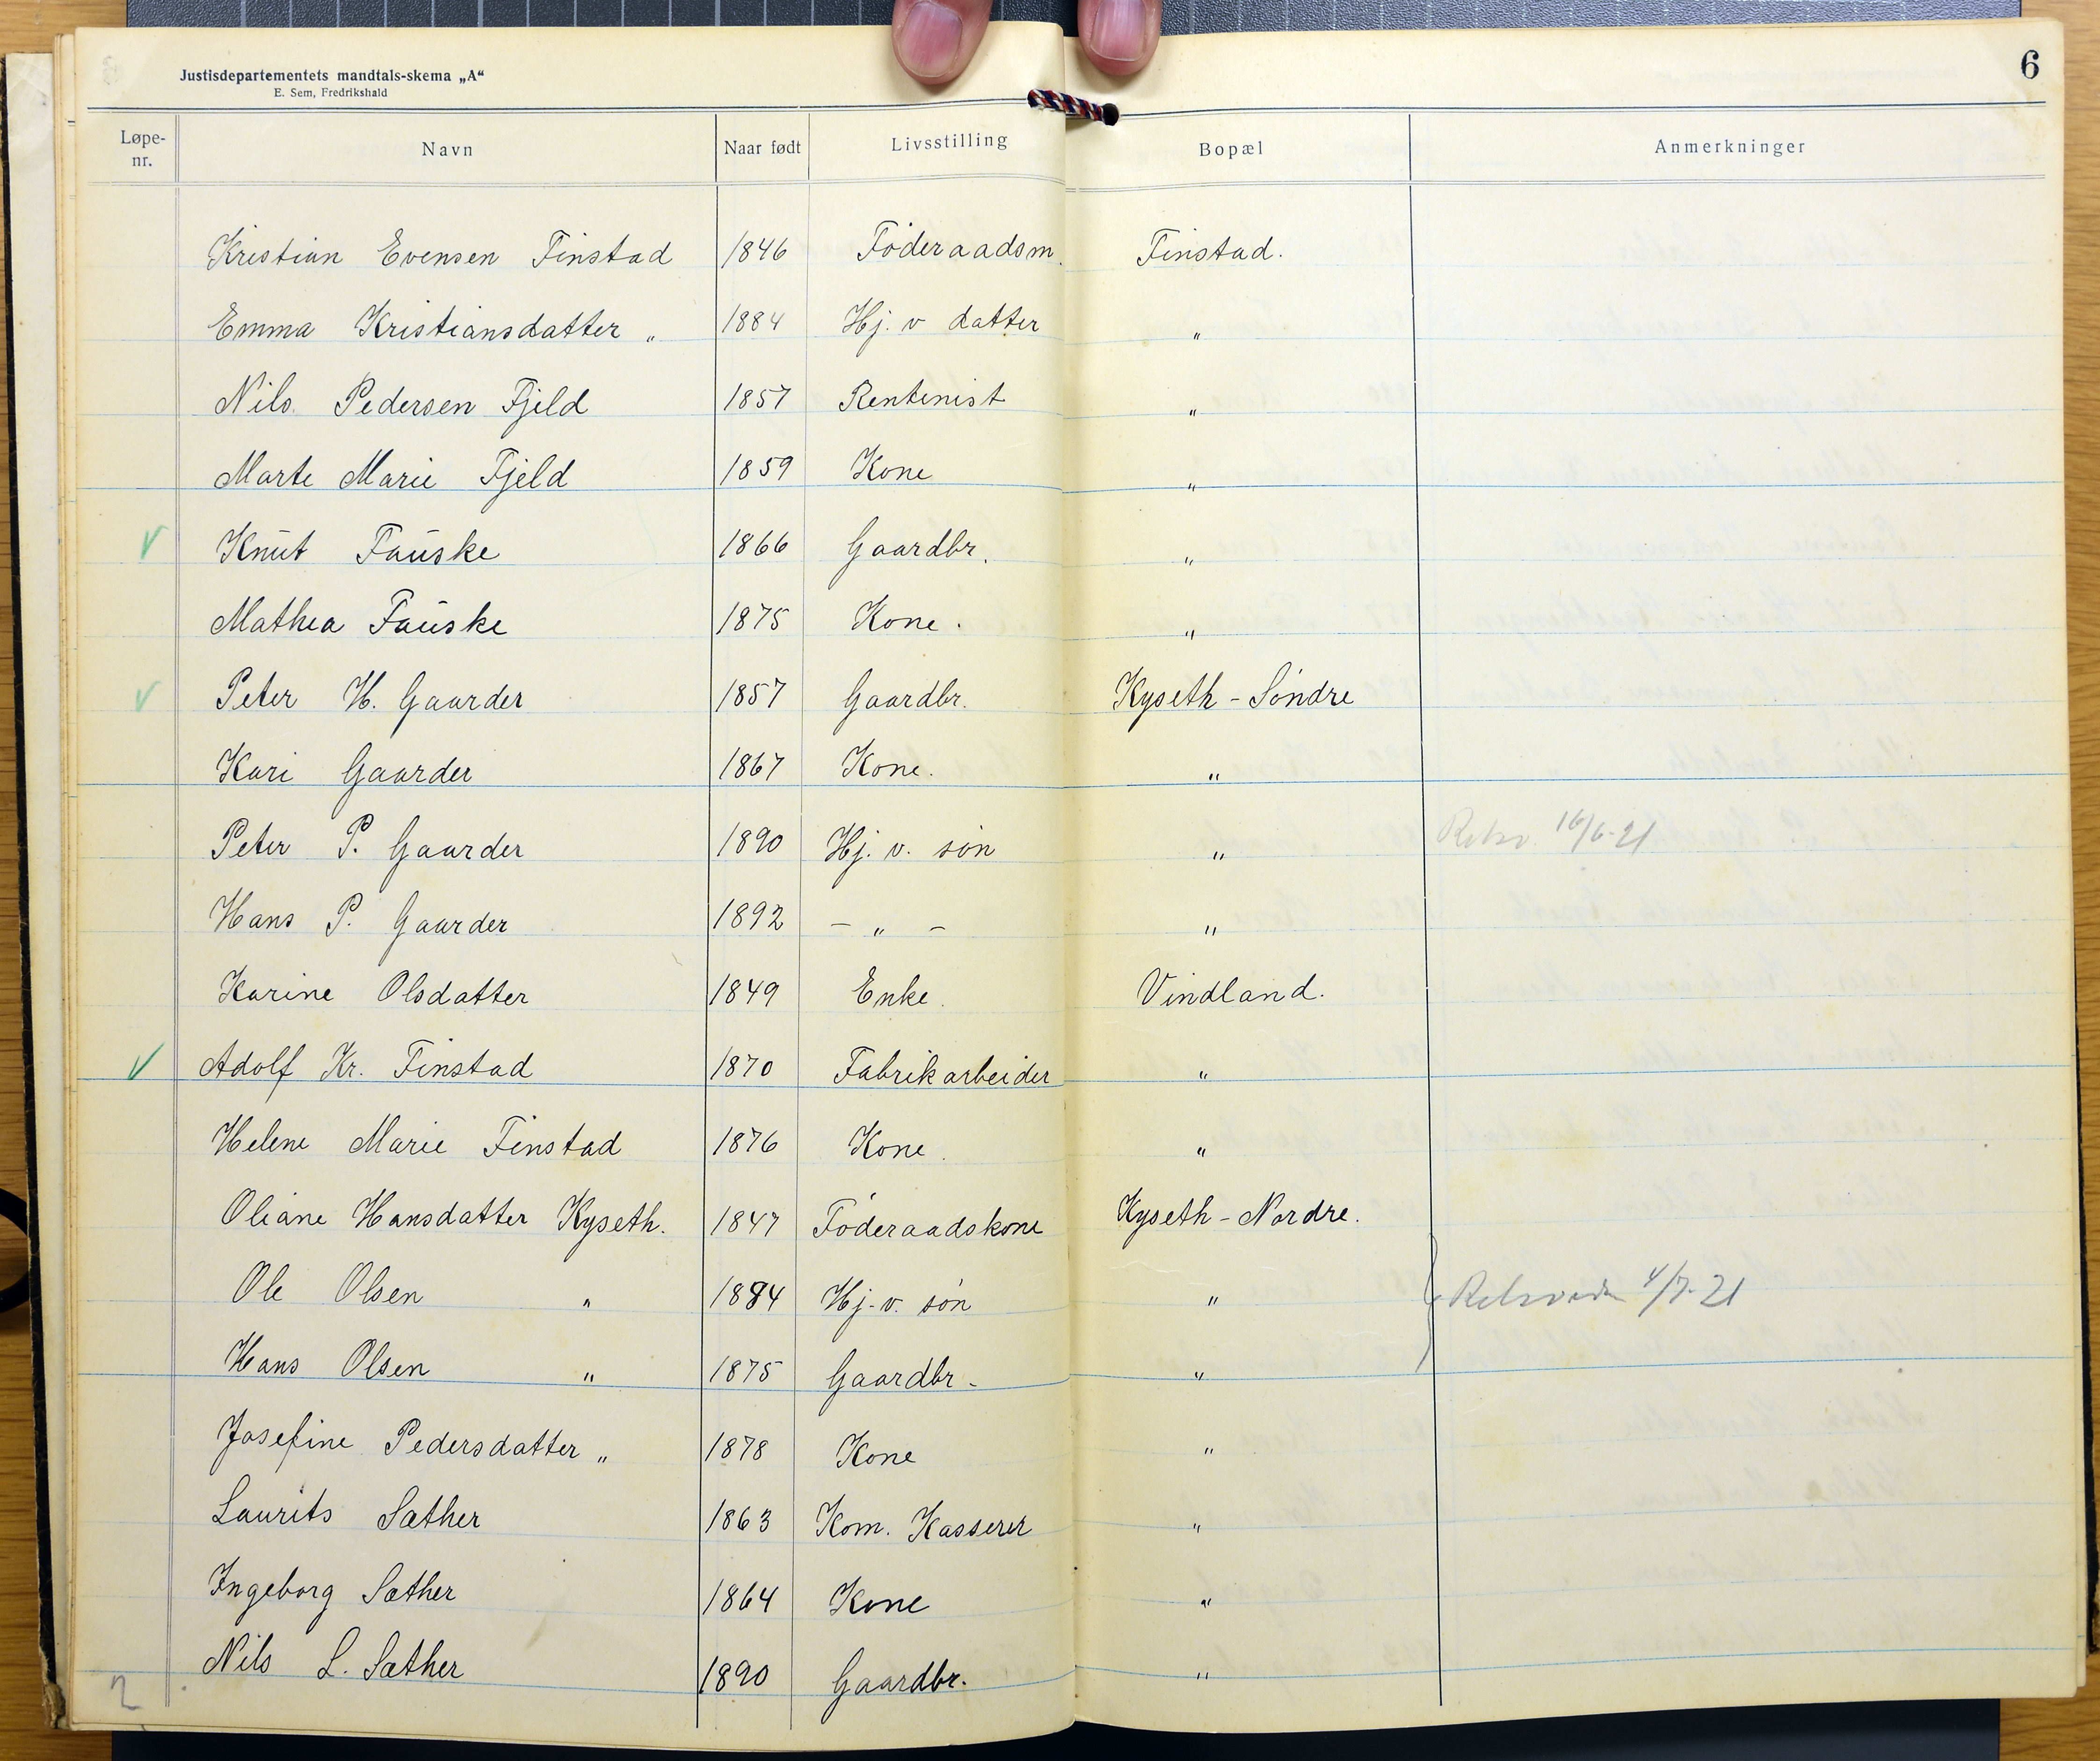 Justisdepartementets mandtals-skema „A“
E. Sem, Fredrikshald
6
Løpe-nr. Navn Naar født Livsstilling Bopæl Anmerkninger
Kristian Evensen Finstad 1846 Föderaadsm. Finstad.
Emma Kristiansdatter „ 1884 Hj. v datter „
Nils Pedersen Fjeld 1857 Rentenist „
Marte Marie Fjeld 1859 Kone „
V Knut Fauske 1866 Gaardbr. „
Mathea Fauske 1875 Kone. „
V Peter H. Gaarder 1857 Gaardbr. Kyseth - Söndre
Kari Gaarder 1867 Kone. „
Peter P. Gaarder 1890 Hj. v. sön „ 16/6-21
Hans P. Gaarder 1892 - „ - „
Karine Olsdatter 1849 Enke. Vindland.
V Adolf Kr. Finstad 1870 Fabrikarbeider „
Helene Marie Finstad 1876 Kone. „
Oliane Hansdatter Kyseth. 1847 Föderaadskone Kyseth - Nordre.
Ole Olsen „ 1884 Hj. v. sön „ 4/7-21
Hans Olsen „ 1875 Gaardbr- „
Josefine Pedersdatter „ 1878 Kone „
Laurits Sæther 1863 Kom. Kasserer „
Ingeborg Sæther 1864 Kone „
Nils L. Sæther 1890 Gaardbr. „
2